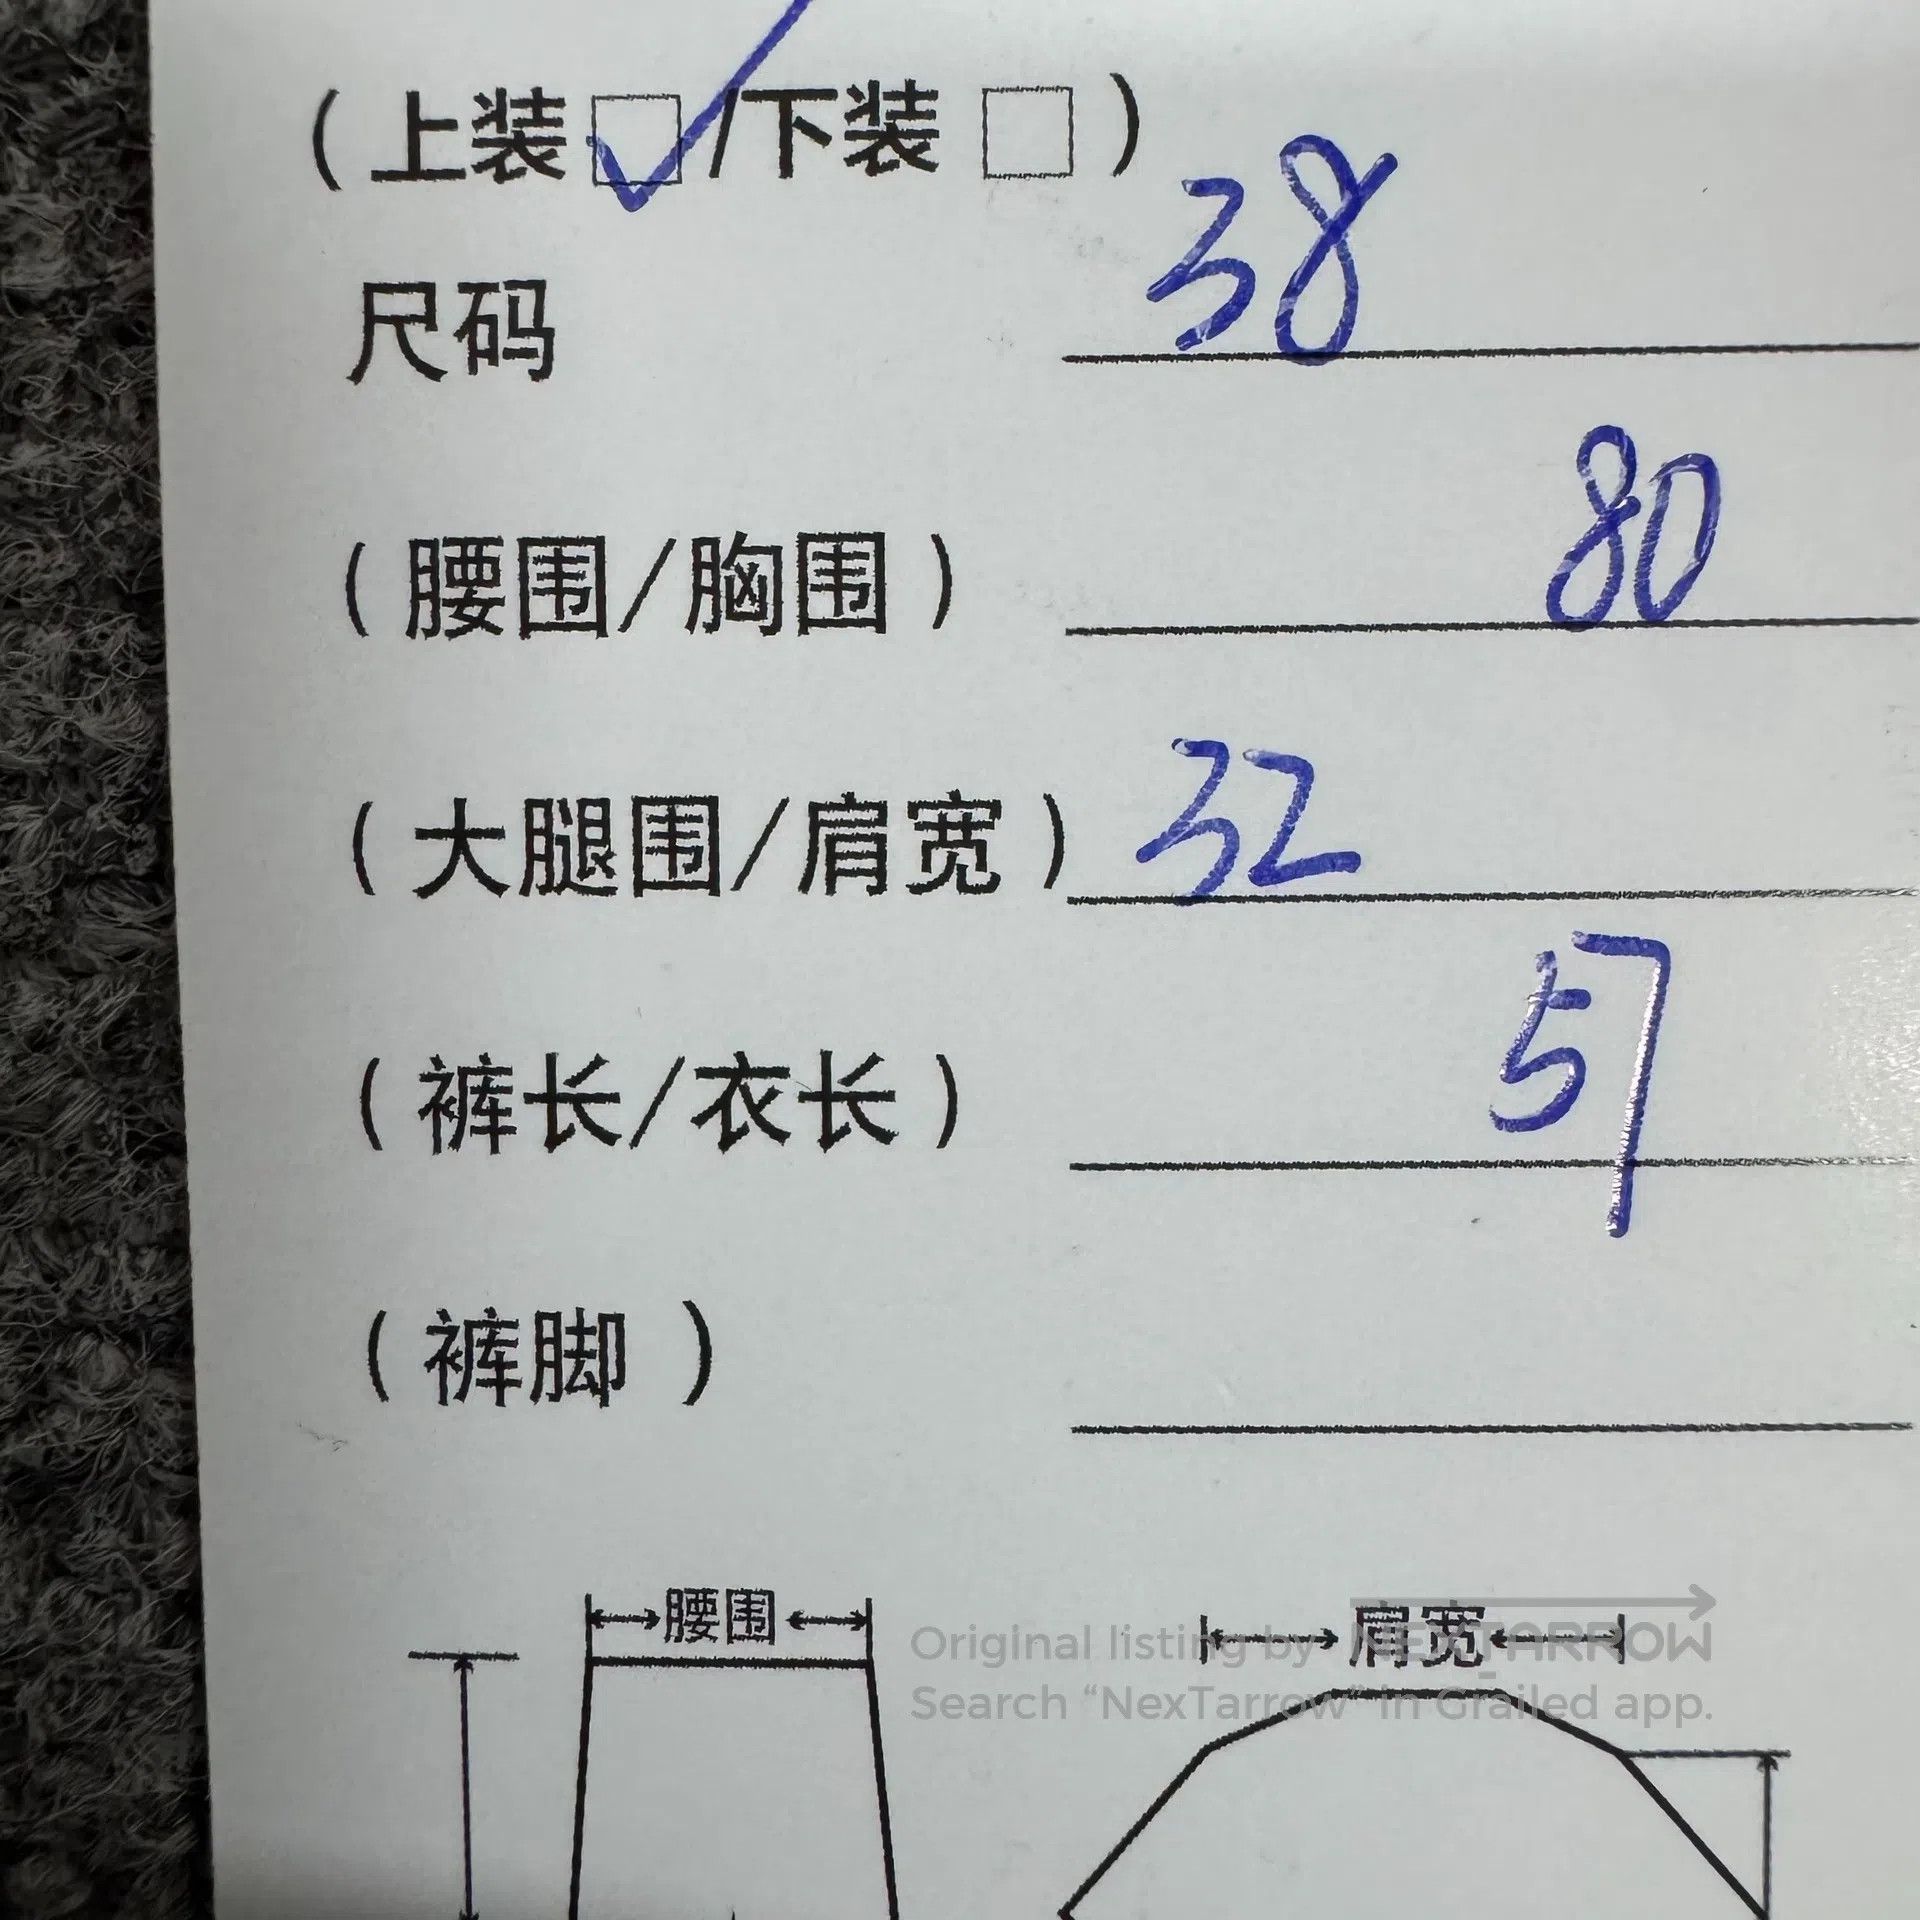 （上装 □ /下装 □ ）
尺码 38
（腰围/胸围） 80
（大腿围/肩宽） 32
（裤长/衣长） 57
（裤脚 ）
腰围
肩宽
Original listing by NEXTARROW
Search “NexTarrow” in Grailed app.